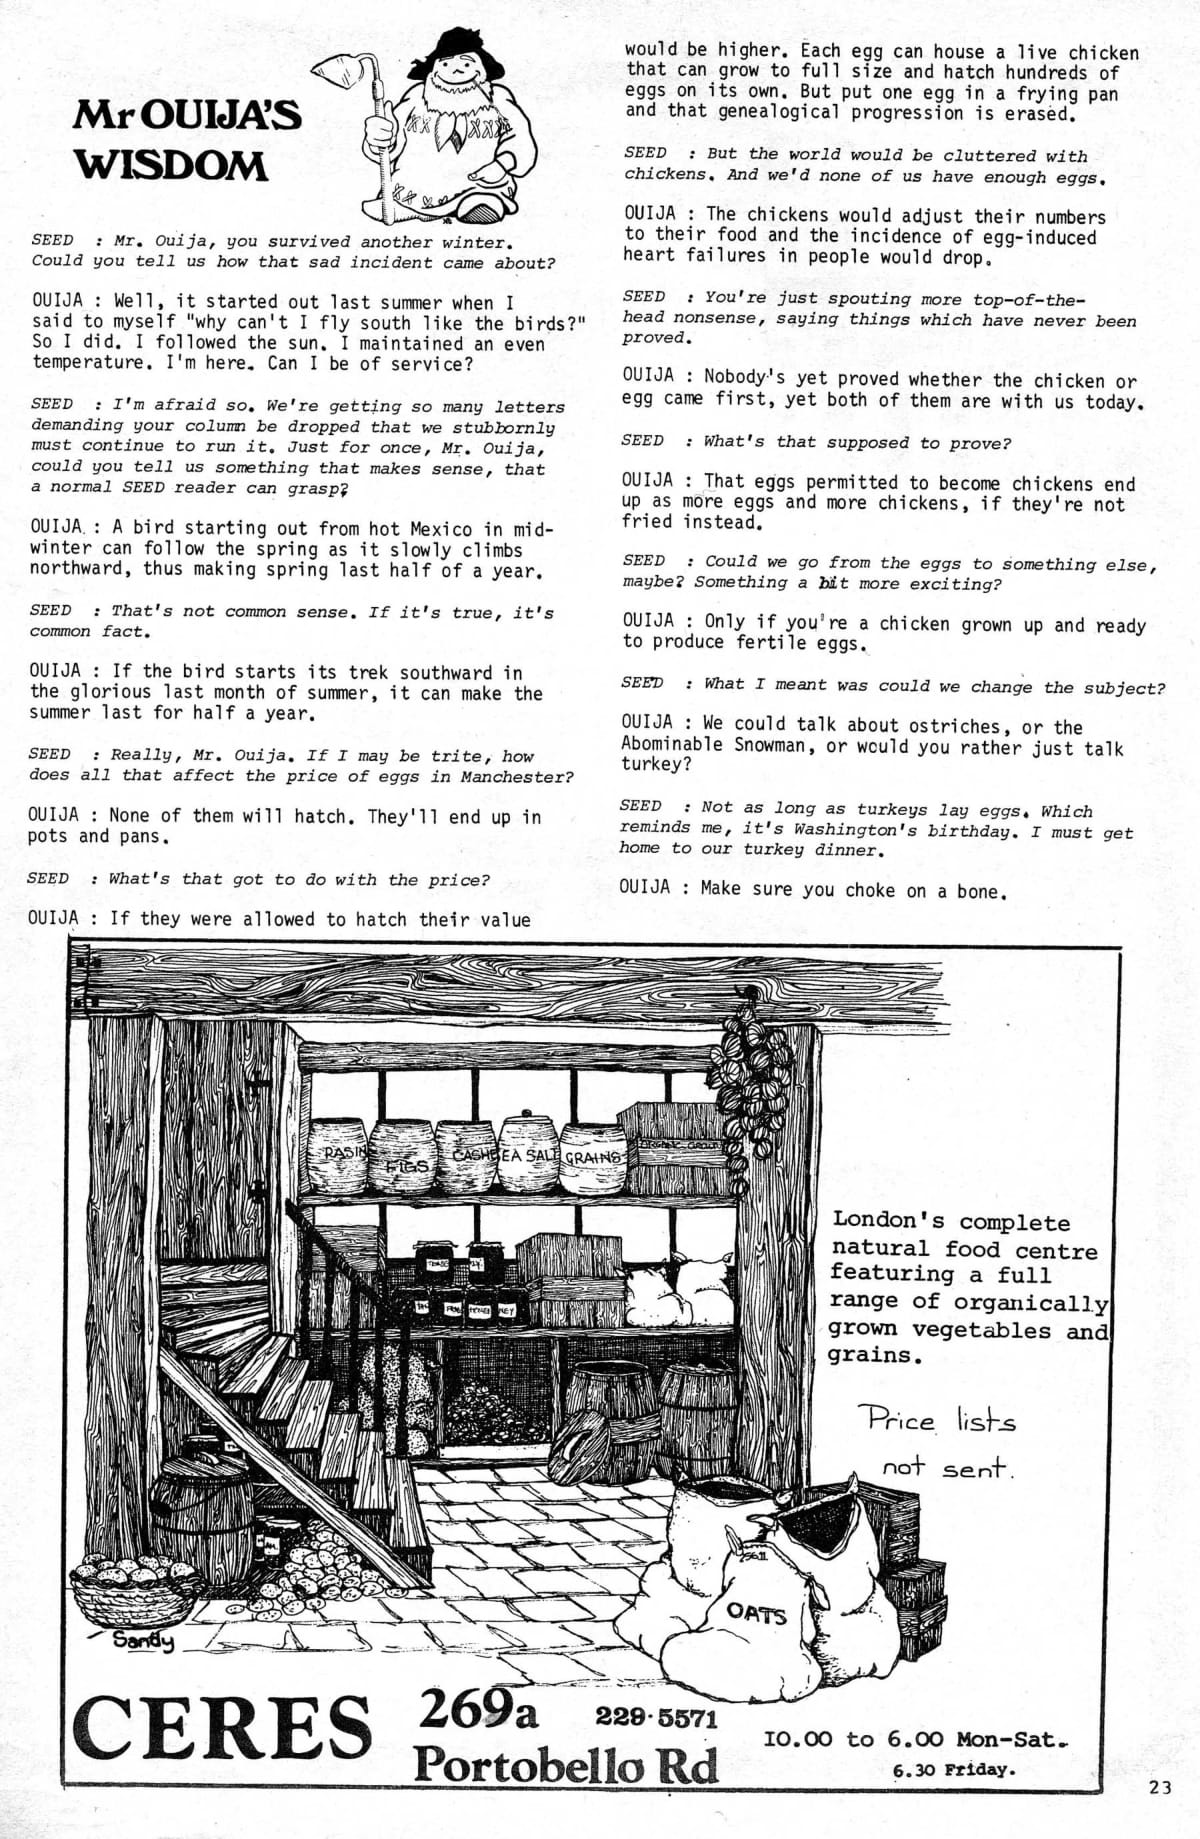 Mr OUIJA'S
WISDOM
SEED : Mr. Ouija, you survived another winter.
Could you tell us how that sad incident came about?
OUIJA : Well, it started out last summer when I
said to myself "why can't I fly south like the birds?"
So I did. I followed the sun. I maintained an even
temperature. I'm here. Can I be of service?
SEED : I'm afraid so. We're getting so many letters
demanding your column be dropped that we stubbornly
must continue to run it. Just for once, Mr. Ouija,
could you tell us something that makes sense, that
a normal SEED reader can grasp?
OUIJA : A bird starting out from hot Mexico in mid-
winter can follow the spring as it slowly climbs
northward, thus making spring last half of a year.
SEED : That's not common sense. If it's true, it's
common fact.
OUIJA : If the bird starts its trek southward in
the glorious last month of summer, it can make the
summer last for half a year.
SEED : Really, Mr. Ouija. If I may be trite, how
does all that affect the price of eggs in Manchester?
OUIJA : None of them will hatch. They'll end up in
pots and pans.
SEED : What's that got to do with the price?
OUIJA : If they were allowed to hatch their value
would be higher. Each egg can house a live chicken
that can grow to full size and hatch hundreds of
eggs on its own. But put one egg in a frying pan
and that genealogical progression is erased.
SEED : But the world would be cluttered with
chickens. And we'd none of us have enough eggs.
OUIJA : The chickens would adjust their numbers
to their food and the incidence of egg-induced
heart failures in people would drop.
SEED : You're just spouting more top-of-the-
head nonsense, saying things which have never been
proved.
OUIJA : Nobody's yet proved whether the chicken or
egg came first, yet both of them are with us today.
SEED : What's that supposed to prove?
OUIJA : That eggs permitted to become chickens end
up as more eggs and more chickens, if they're not
fried instead.
SEED : Could we go from the eggs to something else,
maybe? Something a bit more exciting?
OUIJA : Only if you're a chicken grown up and ready
to produce fertile eggs.
SEED : What I meant was could we change the subject?
OUIJA : We could talk about ostriches, or the
Abominable Snowman, or would you rather just talk
turkey?
SEED : Not as long as turkeys lay eggs. Which
reminds me, it's Washington's birthday. I must get
home to our turkey dinner.
OUIJA : Make sure you choke on a bone.
RASIN FIGS CASHE SEA SALT GRAINS ORGANIC GROW
London's complete
natural food centre
featuring a full
range of organically
grown vegetables and
grains.
Price lists
not sent.
56lb
OATS
Sandy
CERES
269a 229·5571
Portobello Rd
10.00 to 6.00 Mon-Sat.
6.30 Friday.
23